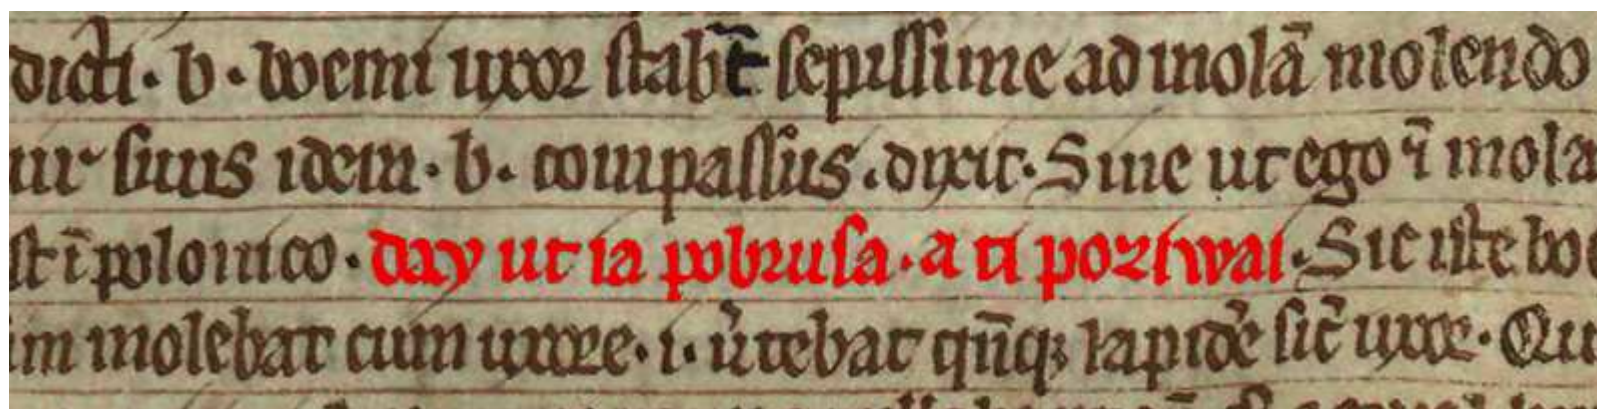 dicti · b · boemi uxor stab̄t sepissime ad molā molendo
ur suus idem · b · compassus · dixit · Sine ut ego ī mola
st ī polonico · day ut ia pobrusa · a ti poziwai · Sic iste bo
m molebat cum uxore · i · v̓tebat qn̄qꝫ lapidē sic̄ uxor · Qu